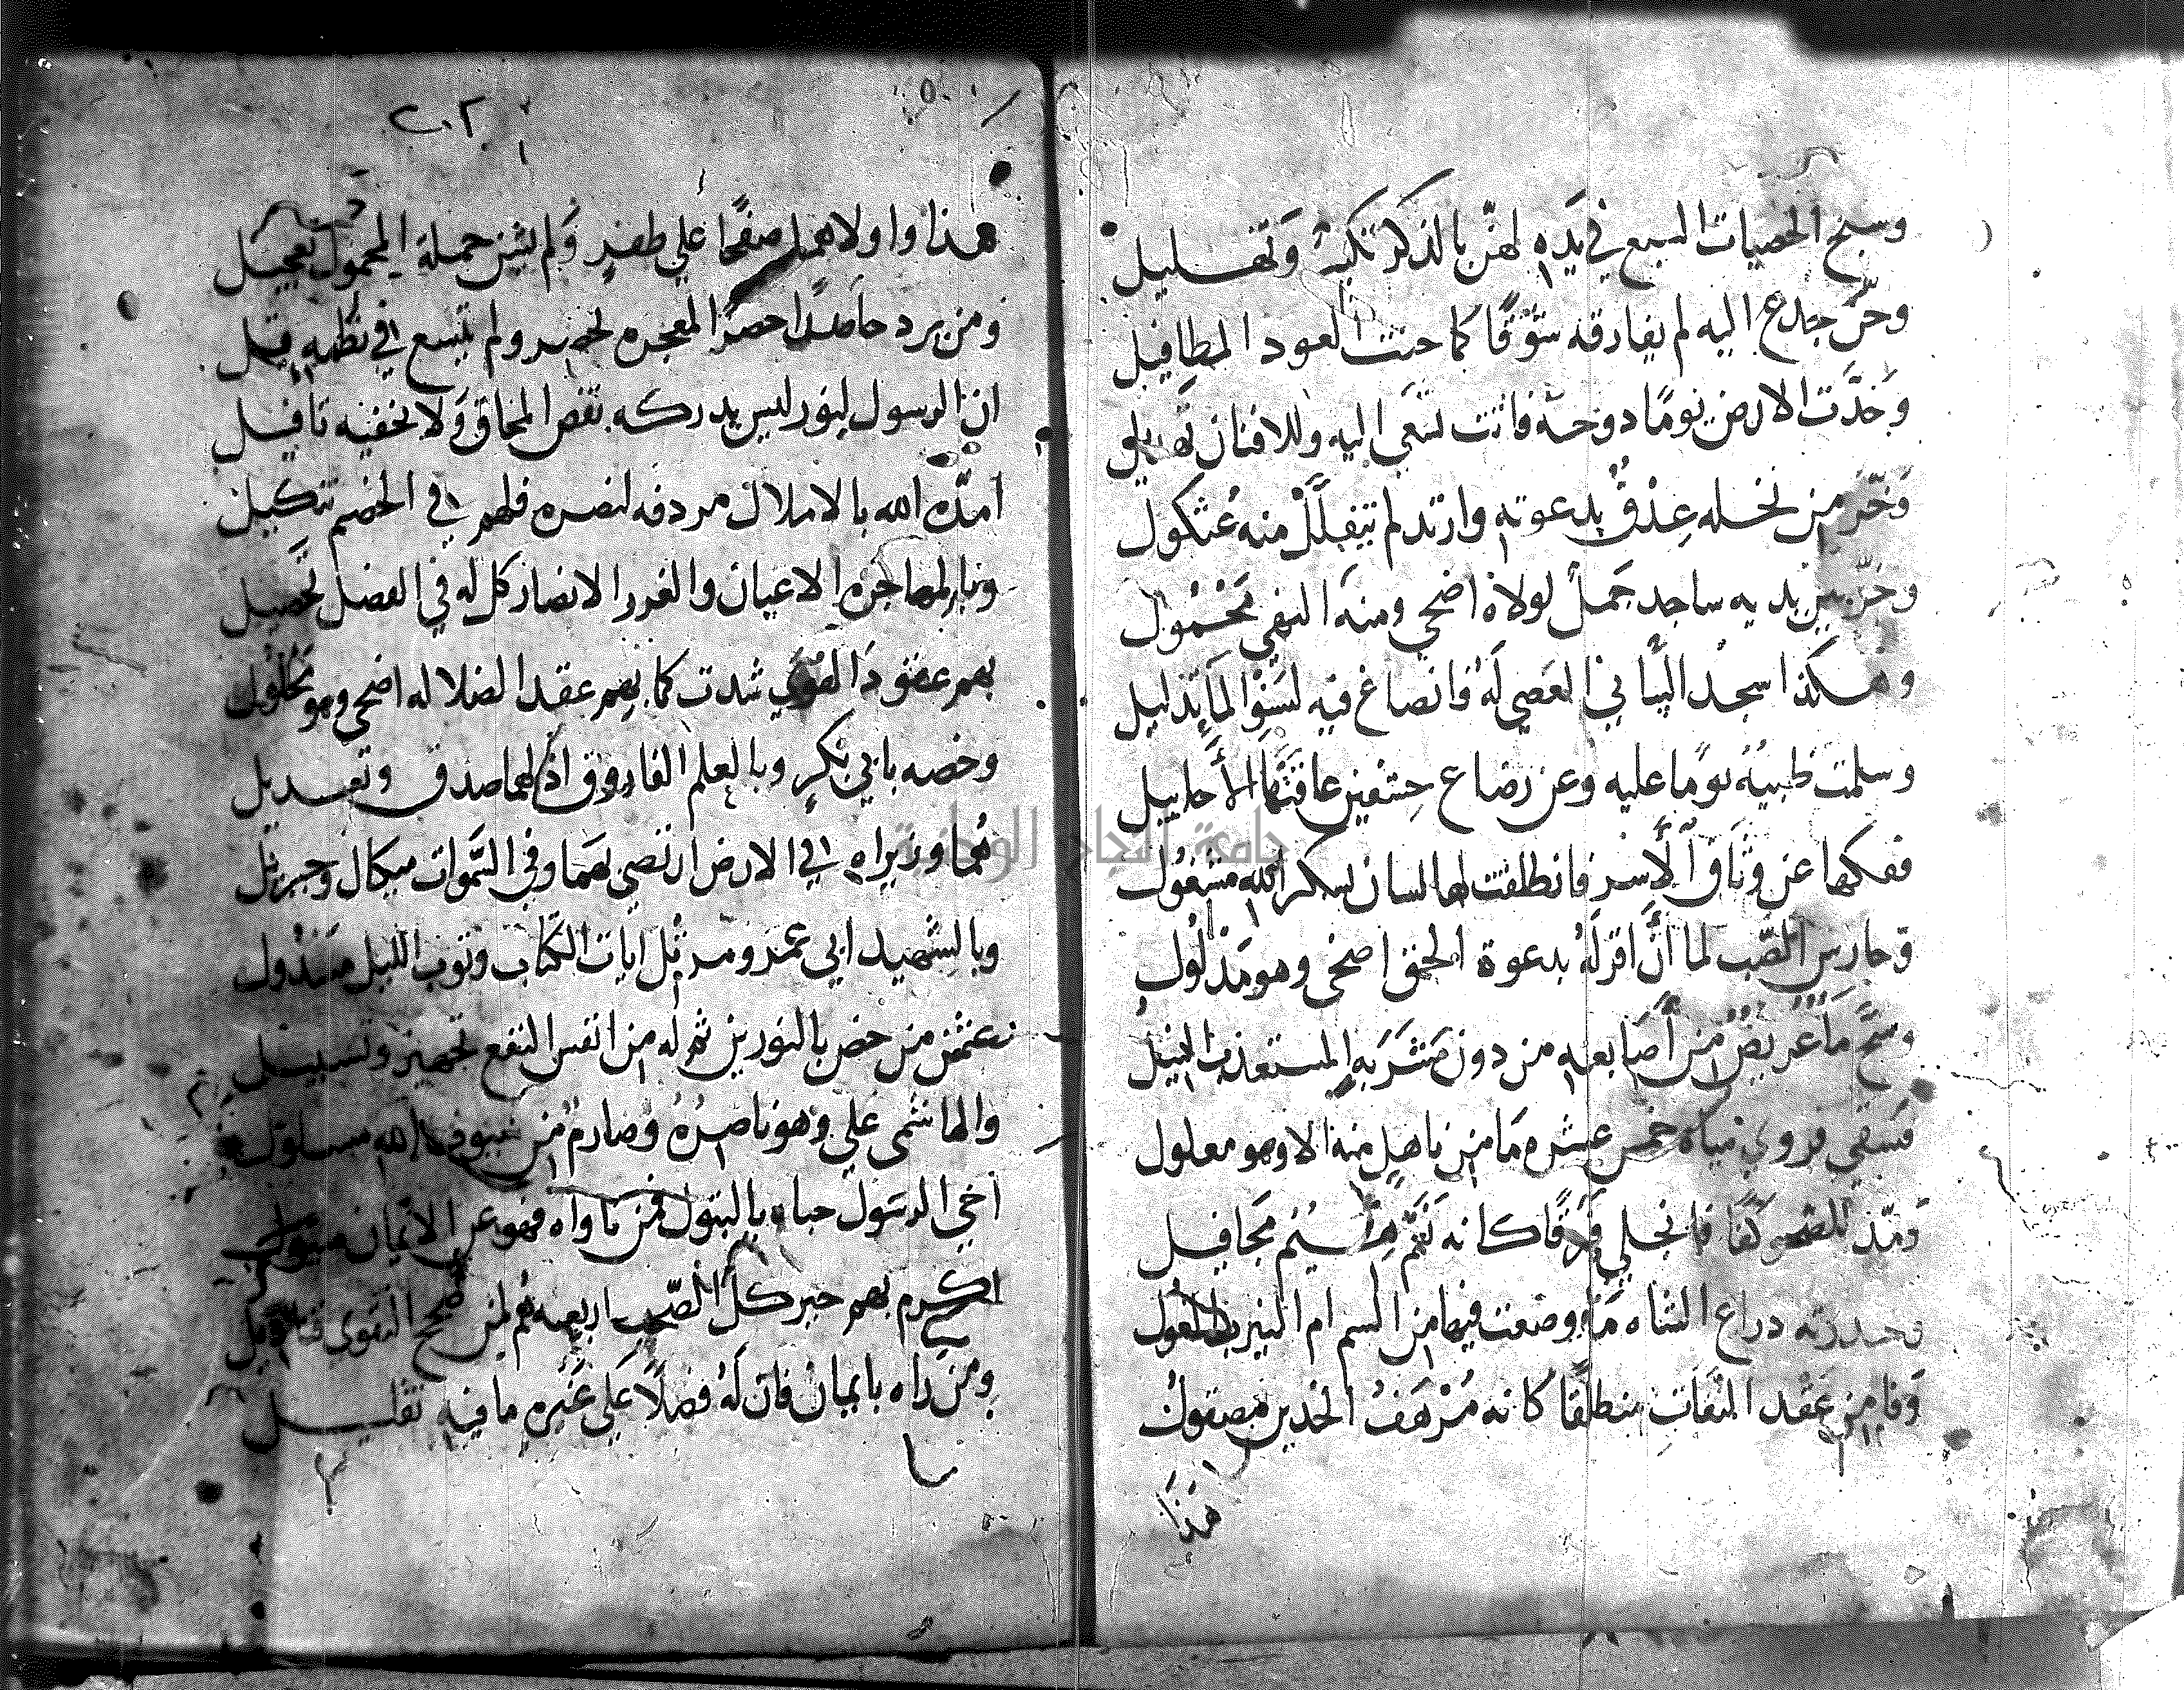 وسبح الحصيات السبع في يده لهن بالذكر تكبير وتهليل
وحن جذع اليه لم يفارقه شوقا كما حنت العوذ المطافيل
وخدت الارض يوما دوحة فاتت تسعى اليه وللافنان
وخر من نخله عذق بدعوته وارتد لم يتفلل منه عثكول
وخر بين يديه ساجد جمل لولاه اضحى ومنه النفي محمول
وهكذا سجد في العصى له فانصاغ فيه تذليل
وسلمت ظبية يوما عليه وعن رضاع خشفين عاقتها الاحابيل
ففكها عن وثاق الأسر فانطلقت لها لسان بشكر الله مشغول
وحارس الضب لما أن اقر له بدعوة الحق اضحى وهو مذلول
وسح ماء عريض من أصابعه من دون مشربه المستعذب النيل
فسقي فروي مياه خمس عشره ما من ناهل منه الا وهو معلول
ومد كفا فانجلي فرقا كانه نعم مجافيل
دراع الشاه ما وضعت فيها من السم ام
من عقد النفاث منطلقا كانه مرهف الخدين مصقول
هذا
٢٠٢
هذا ولا صفحا علي ظفر ولم يشن حمله المحمول تعجيل
ومن يرد حاصدا حصرا لمعجزه يحد ولم يتسع في نظمه قيل
ان الرسول لنور ليس يدركه نقص المحاق ولا يخفيه تافيل
امده الله بالاملاك مردفه لنصره فلهم في الخصم تنكيل
وبالمهاجرة الاعيان والغرر الانصار كل له في الفضل تحصيل
بهم عقود القوي شدت كما بهم عقد الضلاله اضحى وهو محلول
وخصه بابي بكر وبالعلم الفاروق اذ لهما صدق وتعديل
هما وزيراه في الارض ارتضي بهما وفي السموات ميكال وجبريل
وبالشهيد ابي عمرو مرتل ايات الكتاب وثوب الليل مسدول
عثمن من خص بالنورين ثم له من انفس النفع تجهيز وتسبيل
والهاشمي علي وهو ناصره وصارم من سيوف الله مسلول
اخي الرسول حباه بالبتول فمن ناواه فهو عن الايمان
اكرم بهم خير كل الصحب اربعة هم لمن التقوى
ومن راه بايمان فان له فضلا علي غيره ما فيه تقليل